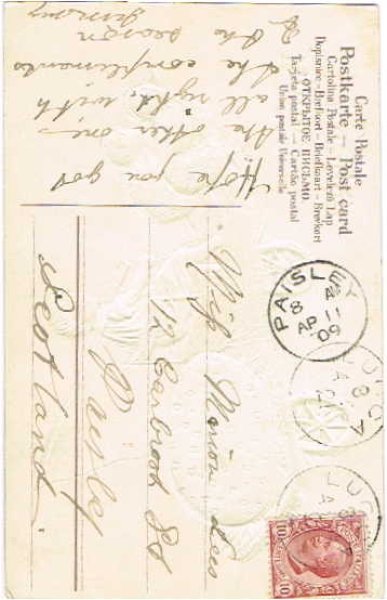 Carte Postale
Postkarte – Post card
Cartolina Postale – Levelező Lap
Dopisnice – Briefkort – Briefkaart – Brevkort
ОТКРЫТОЕ ПИСЬМО
Tarjeta postal – Cartão postal
Union postale Universelle
Hope you got
the other one
all right. with
the compliments
of the
season
PAISLEY
8 AP 09
LUC
LUC
Miss Marion
12 Carbrook St
Paisley
Scotland
10
10